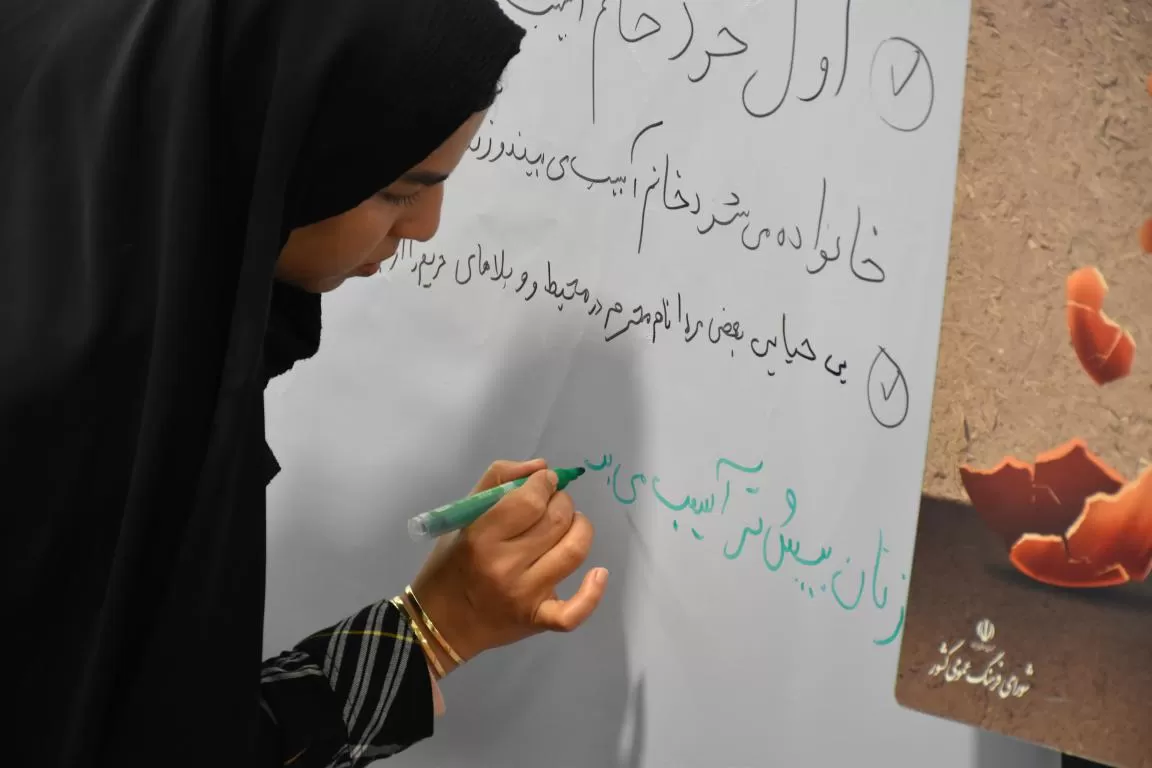 اول خود خانم آسیب
خانواده می شود خانم آسیب می بیند و زن
بی حیایی بعضی را نام محترم در محیط و و بلاهای حریم را از
زنان بیش و تر آسیب می بد
شورای فرهنگ عمومی کشور